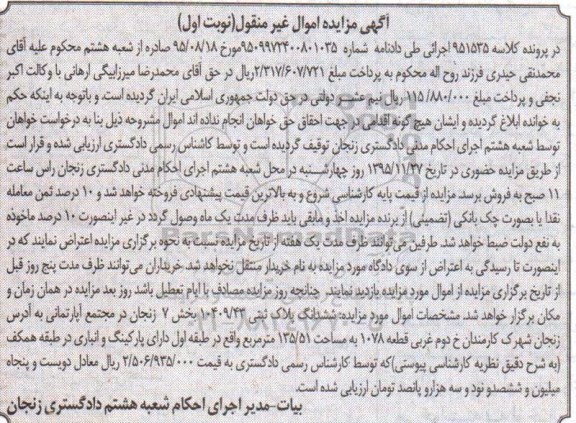 آگهی مزایده اموال غیر منقول(نوبت اول)
در پرونده کلاسه ۹۵۱۵۳۵ اجرائی طی دادنامه شماره ۹۵۰۹۹۷۲۴۰۰۸۰۱۰۳۵مورخ ۹۵/۰۸/۱۸ صادره از شعبه هشتم محکوم علیه آقای
محمدتقی حیدری فرزند روح اله محکوم به پرداخت مبلغ ۲/۳۱۷/۶۰۷/۷۲۱ریال در حق آقای محمدرضا میرزابیگی ارهانی با وکالت اکبر
نجفی و پرداخت مبلغ ۱۱۵/۸۸۰/۰۰۰ ریال نیم عشر دولتی در حق دولت جمهوری اسلامی ایران گردیده است. و باتوجه به اینکه حکم
به خوانده ابلاغ گردیده و ایشان هیچ گونه اقدامی در جهت احقاق حق خواهان انجام نداده اند اموال مشروحه ذیل بنا به درخواست خواهان
توسط شعبه هشتم اجرای احکام مدنی دادگستری زنجان توقیف گردیده است و توسط کاشناس رسمی دادگستری ارزیابی شده و قرار است
از طریق مزایده حضوری در تاریخ ۱۳۹۵/۱۱/۲۷ روز چهارشنبه در محل شعبه هشتم اجرای احکام مدنی دادگستری زنجان راس ساعت
۱۱ صبح به فروش برسد. مزایده از قیمت پایه کارشناسی شروع و به بالاترین قیمت پیشنهادی فروخته خواهد شد و ۱۰ درصد ثمن معامله
نقدا یا بصورت چک بانکی (تضمینی) از برنده مزایده اخذ و مابقی باید ظرف مدت یک ماه وصول گردد در غیر اینصورت ۱۰ درصد ماخوذه
به نفع دولت ضبط خواهد شد. طرفین می‌توانند ظرف مدت یک هفته از تاریخ مزایده نسبت به نحوه برگزاری مزایده اعتراض نمایند که در
اینصورت تا رسیدگی به اعتراض از سوی دادگاه مورد مزایده به نام خریدار منتقل نخواهد شد. خریداران می‌توانند ظرف مدت پنج روز قبل
از تاریخ برگزاری مزایده از اموال مورد مزایده بازدید نمایند. چنانچه روز مزایده مصادف با ایام تعطیل باشد روز بعد مزایده در همان زمان و
مکان برگزار خواهد شد. مشخصات اموال مورد مزایده: ششدانگ پلاک ثبتی ۱۰۴۰۹/۴۳ بخش ۷ زنجان در مجتمع آپارتمانی به آدرس
زنجان شهرک کارمندان خ دوم غربی قطعه ۱۰۷۸ به مساحت ۱۳۵/۵۱ مترمربع واقع در طبقه اول دارای پارکینگ و انباری در طبقه همکف
(به شرح دقیق نظریه کارشناسی پیوستی)که توسط کارشناس رسمی دادگستری به قیمت ۲/۵۰۶/۹۳۵/۰۰۰ ریال معادل دویست و پنجاه
میلیون و ششصدو نود و سه هزارو پانصد تومان ارزیابی شده است.
بیات-مدیر اجرای احکام شعبه هشتم دادگستری زنجان